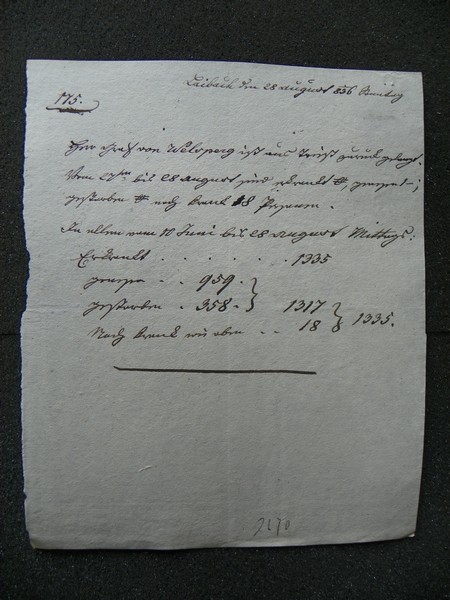 Laibach den 28 August 836
175.
Herr Graf von Welsperg ist aus Triest zurück gelangt.
Vom 27ten bis 28 August sind erkrankt #, genesen –;
gestorben # noch krank 18 Personen.
In allem vom 10 Juni bis 28 August Mittags:
Erkrankt . . . . . . . 1335
genesen . . 959.
gestorben . 358. } 1317
Noch krank wie oben . . 18 } 1335.
2690